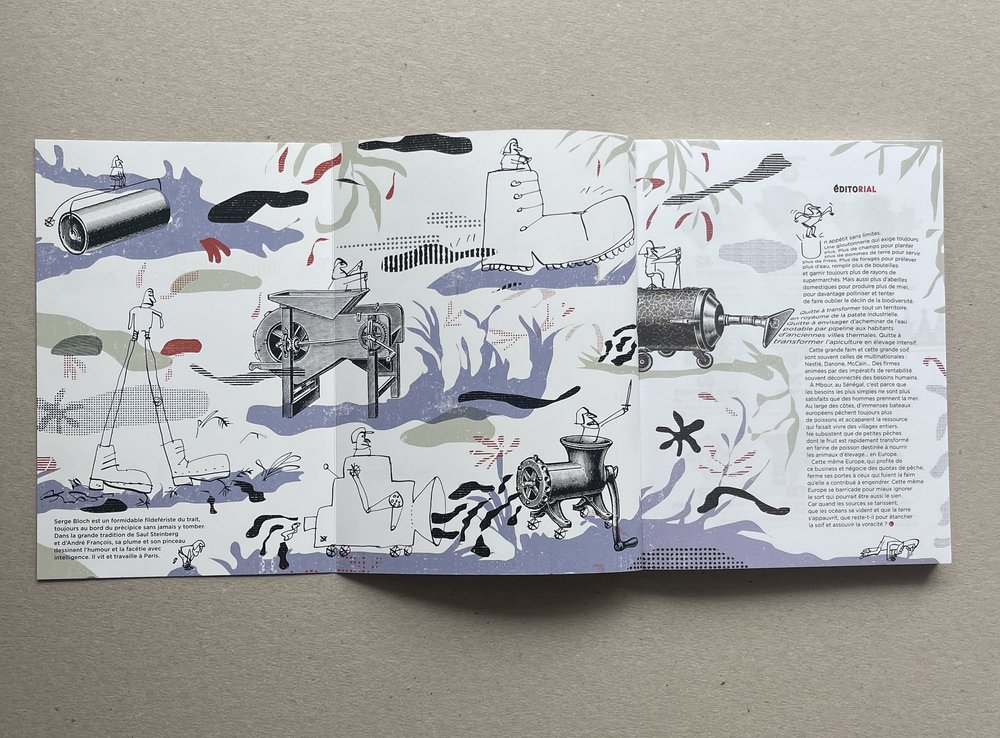 Serge Bloch est un formidable fildefériste du trait,
toujours au bord du précipice sans jamais y tomber.
Dans la grande tradition de Saul Steinberg
et d'André François, sa plume et son pinceau
dessinent l'humour et la facétie avec
intelligence. Il vit et travaille à Paris.
éDITORIAL
Un appétit sans limites.
Une gloutonnerie qui exige toujours
plus. Plus de champs pour planter
plus de pommes de terre pour servir
plus de frites. Plus de forages pour prélever
plus d'eau, remplir plus de bouteilles
et garnir toujours plus de rayons de
supermarchés. Mais aussi plus d'abeilles
domestiques pour produire plus de miel,
pour davantage polliniser et tenter
de faire oublier le déclin de la biodiversité.
Quitte à transformer tout un territoire
en royaume de la patate industrielle.
Quitte à envisager d'acheminer de l'eau
potable par pipeline aux habitants
d'anciennes villes thermales. Quitte à
transformer l'apiculture en élevage intensif.
Cette grande faim et cette grande soif
sont souvent celles de multinationales :
Nestlé, Danone, McCain... Des firmes
animées par des impératifs de rentabilité
souvent déconnectés des besoins humains.
À Mbour, au Sénégal, c'est parce que
les besoins les plus simples ne sont plus
satisfaits que des hommes prennent la mer.
Au large des côtes, d'immenses bateaux
européens pêchent toujours plus
de poissons et accaparent la ressource
qui faisait vivre des villages entiers.
Ne subsistent que de petites pêches
dont le fruit est rapidement transformé
en farine de poisson destinée à nourrir
les animaux d'élevage... en Europe.
Cette même Europe, qui profite de
ce business et négocie des quotas de pêche,
ferme ses portes à ceux qui fuient la faim
qu'elle a contribué à engendrer. Cette même
Europe se barricade pour mieux ignorer
le sort qui pourrait être aussi le sien.
Car quand les sources se tarissent,
que les océans se vident et que la terre
s'appauvrit, que reste-t-il pour étancher
la soif et assouvir la voracité ?